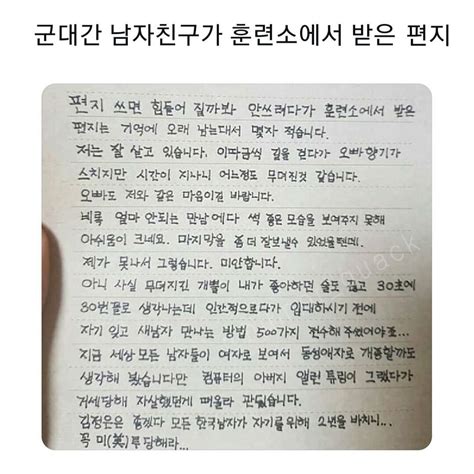 군대간 남자친구가 훈련소에서 받은 편지
편지 쓰면 힘들어 질까봐 안쓰려다가 훈련소에서 받은
편지는 기억에 오래 남는대서 몇자 적습니다.
저는 잘 살고 있습니다. 이따금씩 길을 걷다가 오빠향기가
스치지만 시간이 지나니 어느정도 무뎌진것 같습니다.
오빠도 저와 같은 마음이길 바랍니다.
비록 얼마 안되는 만남에다 썩 좋은 모습을 보여주지 못해
아쉬움이 크네요. 마지막을 좀 더 잘보낼수 있었을텐데.
제가 못나서 그렇습니다. 미안합니다.
아니 사실 무뎌지긴 개뿔이 내가 좋아하던 술도 끊고 30초에
30번꼴로 생각나는데 인간적으로다가 입대하시기 전에
자기 잊고 새남자 만나는 방법 500가지 전수해 주셨어야죠...
지금 세상 모든 남자들이 여자로 보여서 동성애자로 개종할까도
생각해 봤습니다만 컴퓨터의 아버지 앨런 튜링이 그랬다가
거세당해 자살했던게 떠올라 관뒀습니다.
김정은은 좋겠다 모든 한국남자가 자기를 위해 2년을 바치니...
꼭 미(美)루당해라...